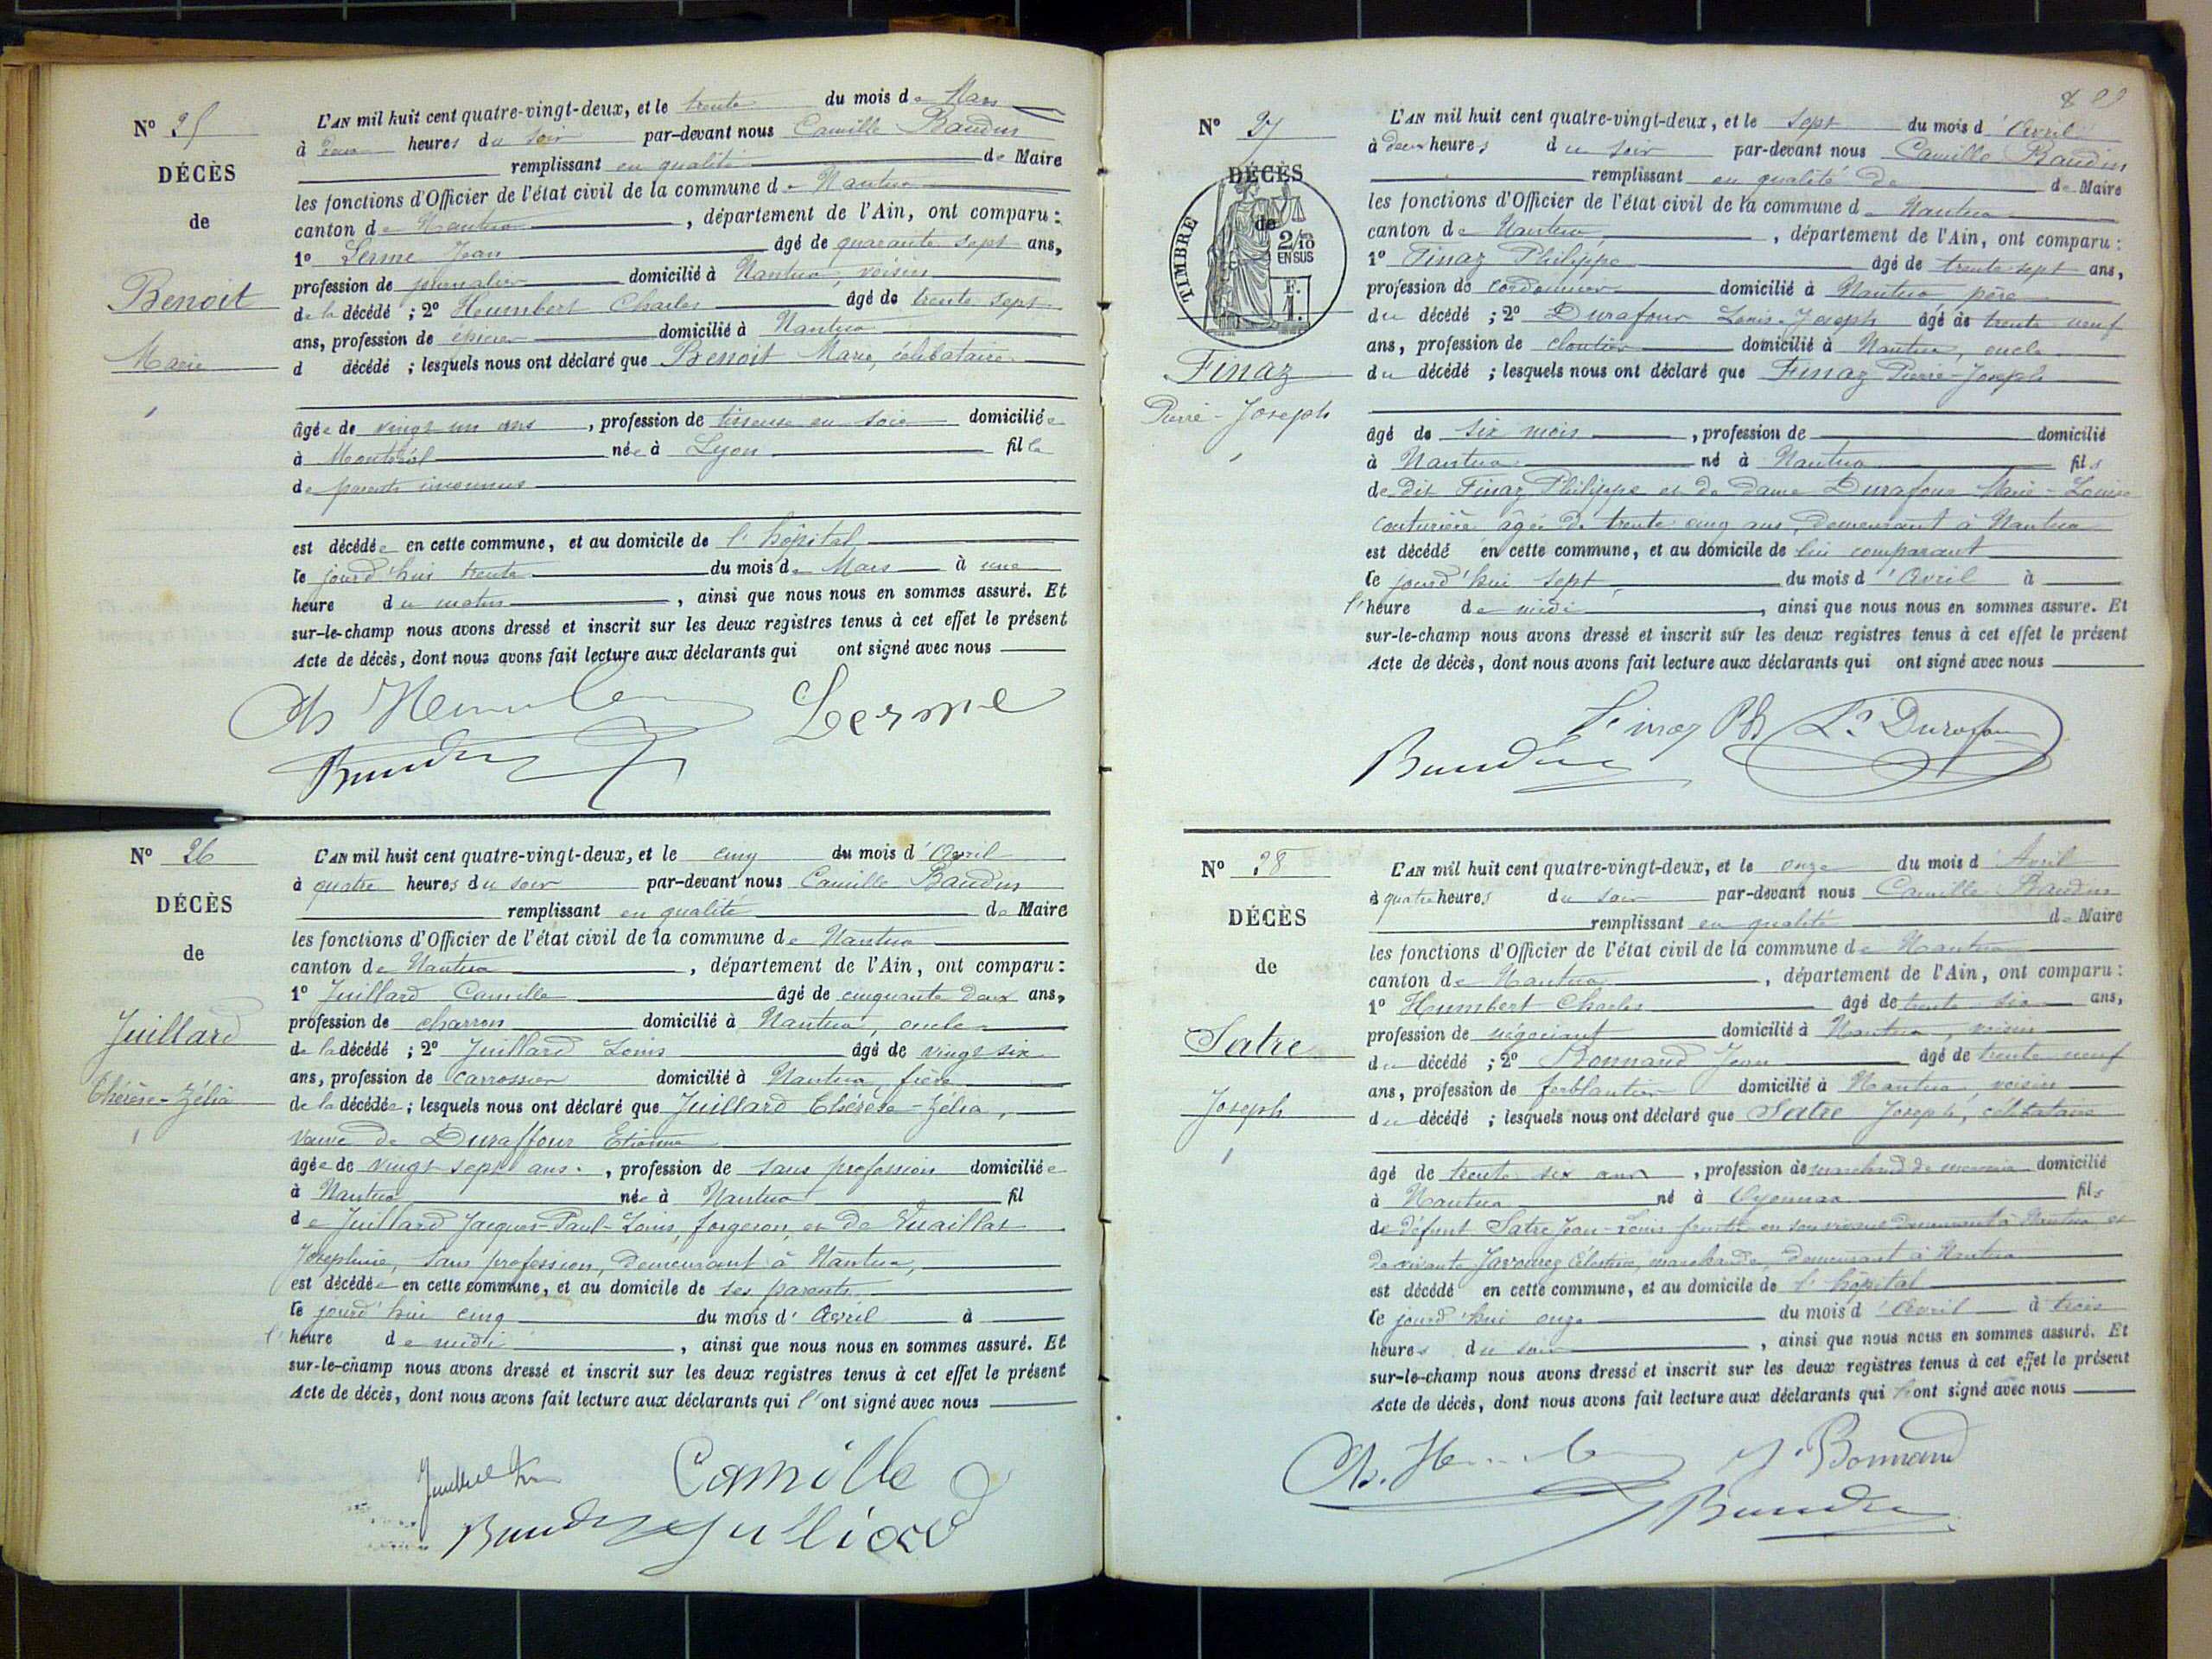 N° 25
DÉCÈS
de
Benoit
Marie
L'AN mil huit cent quatre-vingt-deux, et le trente du mois de Mars
à deux heures du soir par-devant nous Camille Baudin
remplissant en qualité de Maire
les fonctions d'Officier de l'état civil de la commune de Nantua
canton de Nantua, département de l'Ain, ont comparu :
1° Lerme Jean âgé de quarante sept ans,
profession de journalier domicilié à Nantua, voisin
de la décédé ; 2° Heumbert Charles âgé de trente sept
ans, profession de épicier domicilié à Nantua
d décédé ; lesquels nous ont déclaré que Benoit Marie, célibataire
âgée de vingt un ans, profession de tisseuse en soie domiciliée
à Montréal née à Lyon fille
de parents inconnus
est décédée en cette commune, et au domicile de l'hôpital
le jourd'hui trente du mois de Mars à une
heure du matin, ainsi que nous nous en sommes assuré. Et
sur-le-champ nous avons dressé et inscrit sur les deux registres tenus à cet effet le présent
Acte de décès, dont nous avons fait lecture aux déclarants qui ont signé avec nous
Lerme
Baudin
N° 26
DÉCÈS
de
Juillard
Thérèse-Zélia
L'AN mil huit cent quatre-vingt-deux, et le cinq du mois d'Avril
à quatre heures du soir par-devant nous Camille Baudin
remplissant en qualité de Maire
les fonctions d'Officier de l'état civil de la commune de Nantua
canton de Nantua, département de l'Ain, ont comparu :
1° Juillard Camille âgé de cinquante deux ans,
profession de charron domicilié à Nantua, oncle
de la décédé ; 2° Juillard Louis âgé de vingt six
ans, profession de carrossier domicilié à Nantua, frère
de la décédée ; lesquels nous ont déclaré que Juillard Thérèse-Zélia,
veuve de Duraffour Etienne
âgée de vingt sept ans, profession de sans profession domiciliée
à Nantua née à Nantua fil
de Juillard Jacques-Paul-Louis, forgeron, et de
Josephine, sans profession, demeurant à Nantua,
est décédée en cette commune, et au domicile de ses parents
le jourd'hui cinq du mois d'Avril à
l'heure de midi, ainsi que nous nous en sommes assuré. Et
sur-le-champ nous avons dressé et inscrit sur les deux registres tenus à cet effet le présent
Acte de décès, dont nous avons fait lecture aux déclarants qui l'ont signé avec nous
Camille
Baudin Julliard
N° 27
DÉCÈS
de
TIMBRE
2/10
EN SUS
F.
1.
Finaz
Pierre-Joseph
L'AN mil huit cent quatre-vingt-deux, et le sept du mois d'Avril
à deux heures du soir par-devant nous Camille Baudin
remplissant en qualité de de Maire
les fonctions d'Officier de l'état civil de la commune de Nantua
canton de Nantua, département de l'Ain, ont comparu :
1° Finaz Philippe âgé de trente sept ans,
profession de cordonnier domicilié à Nantua père
du décédé ; 2° Durafour Louis-Joseph âgé de trente neuf
ans, profession de cloutier domicilié à Nantua, oncle
du décédé ; lesquels nous ont déclaré que Finaz Pierre-Joseph
âgé de six mois, profession de domicilié
à Nantua né à Nantua fils
de dit Finaz Philippe et de dame Durafour Marie-Louise
couturière âgée de trente cinq ans, demeurant à Nantua
est décédé en cette commune, et au domicile de lui comparant
le jourd'hui sept, du mois d'Avril à
l'heure de midi, ainsi que nous nous en sommes assuré. Et
sur-le-champ nous avons dressé et inscrit sur les deux registres tenus à cet effet le présent
Acte de décès, dont nous avons fait lecture aux déclarants qui ont signé avec nous
Finaz Ph Ls Durafour
Baudin
N° 28
DÉCÈS
de
Satre
Joseph
L'AN mil huit cent quatre-vingt-deux, et le onze du mois d Avril
à quatre heures du soir par-devant nous Camille Baudin
remplissant en qualité de Maire
les fonctions d'Officier de l'état civil de la commune de Nantua
canton de Nantua, département de l'Ain, ont comparu :
1° Humbert Charles âgé de trente six ans,
profession de négociant domicilié à Nantua, voisin
du décédé ; 2° Bonnand Jean âgé de trente neuf
ans, profession de ferblantier domicilié à Nantua, voisin
du décédé ; lesquels nous ont déclaré que Satre Joseph, célibataire
âgé de trente six ans, profession de marchand de mercerie domicilié
à Nantua né à Oyonnax fils
de défunt Satre Jean-Louis en son vivant demeurant à Nantua et
de vivante Célestine, marchande, demeurant à Nantua
est décédé en cette commune, et au domicile de l'hôpital
le jourd'hui onze du mois d'Avril à trois
heures du soir, ainsi que nous nous en sommes assuré. Et
sur-le-champ nous avons dressé et inscrit sur les deux registres tenus à cet effet le présent
Acte de décès, dont nous avons fait lecture aux déclarants qui ont signé avec nous
J. Bonnand
Baudin